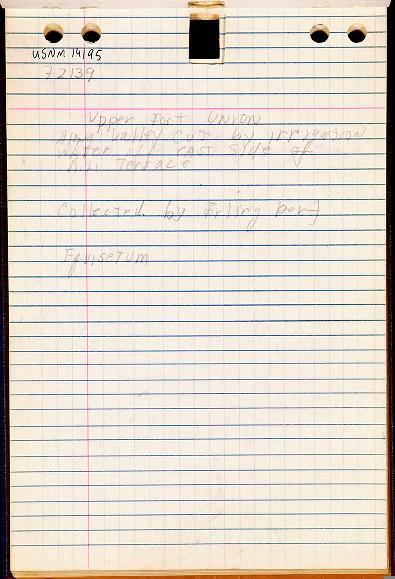 USNM 14195
72139
Upper Fort Union
Along Valley cut by irrigation
Water in east side of
Terrace
Collected by Erling Dorf
Equisetum